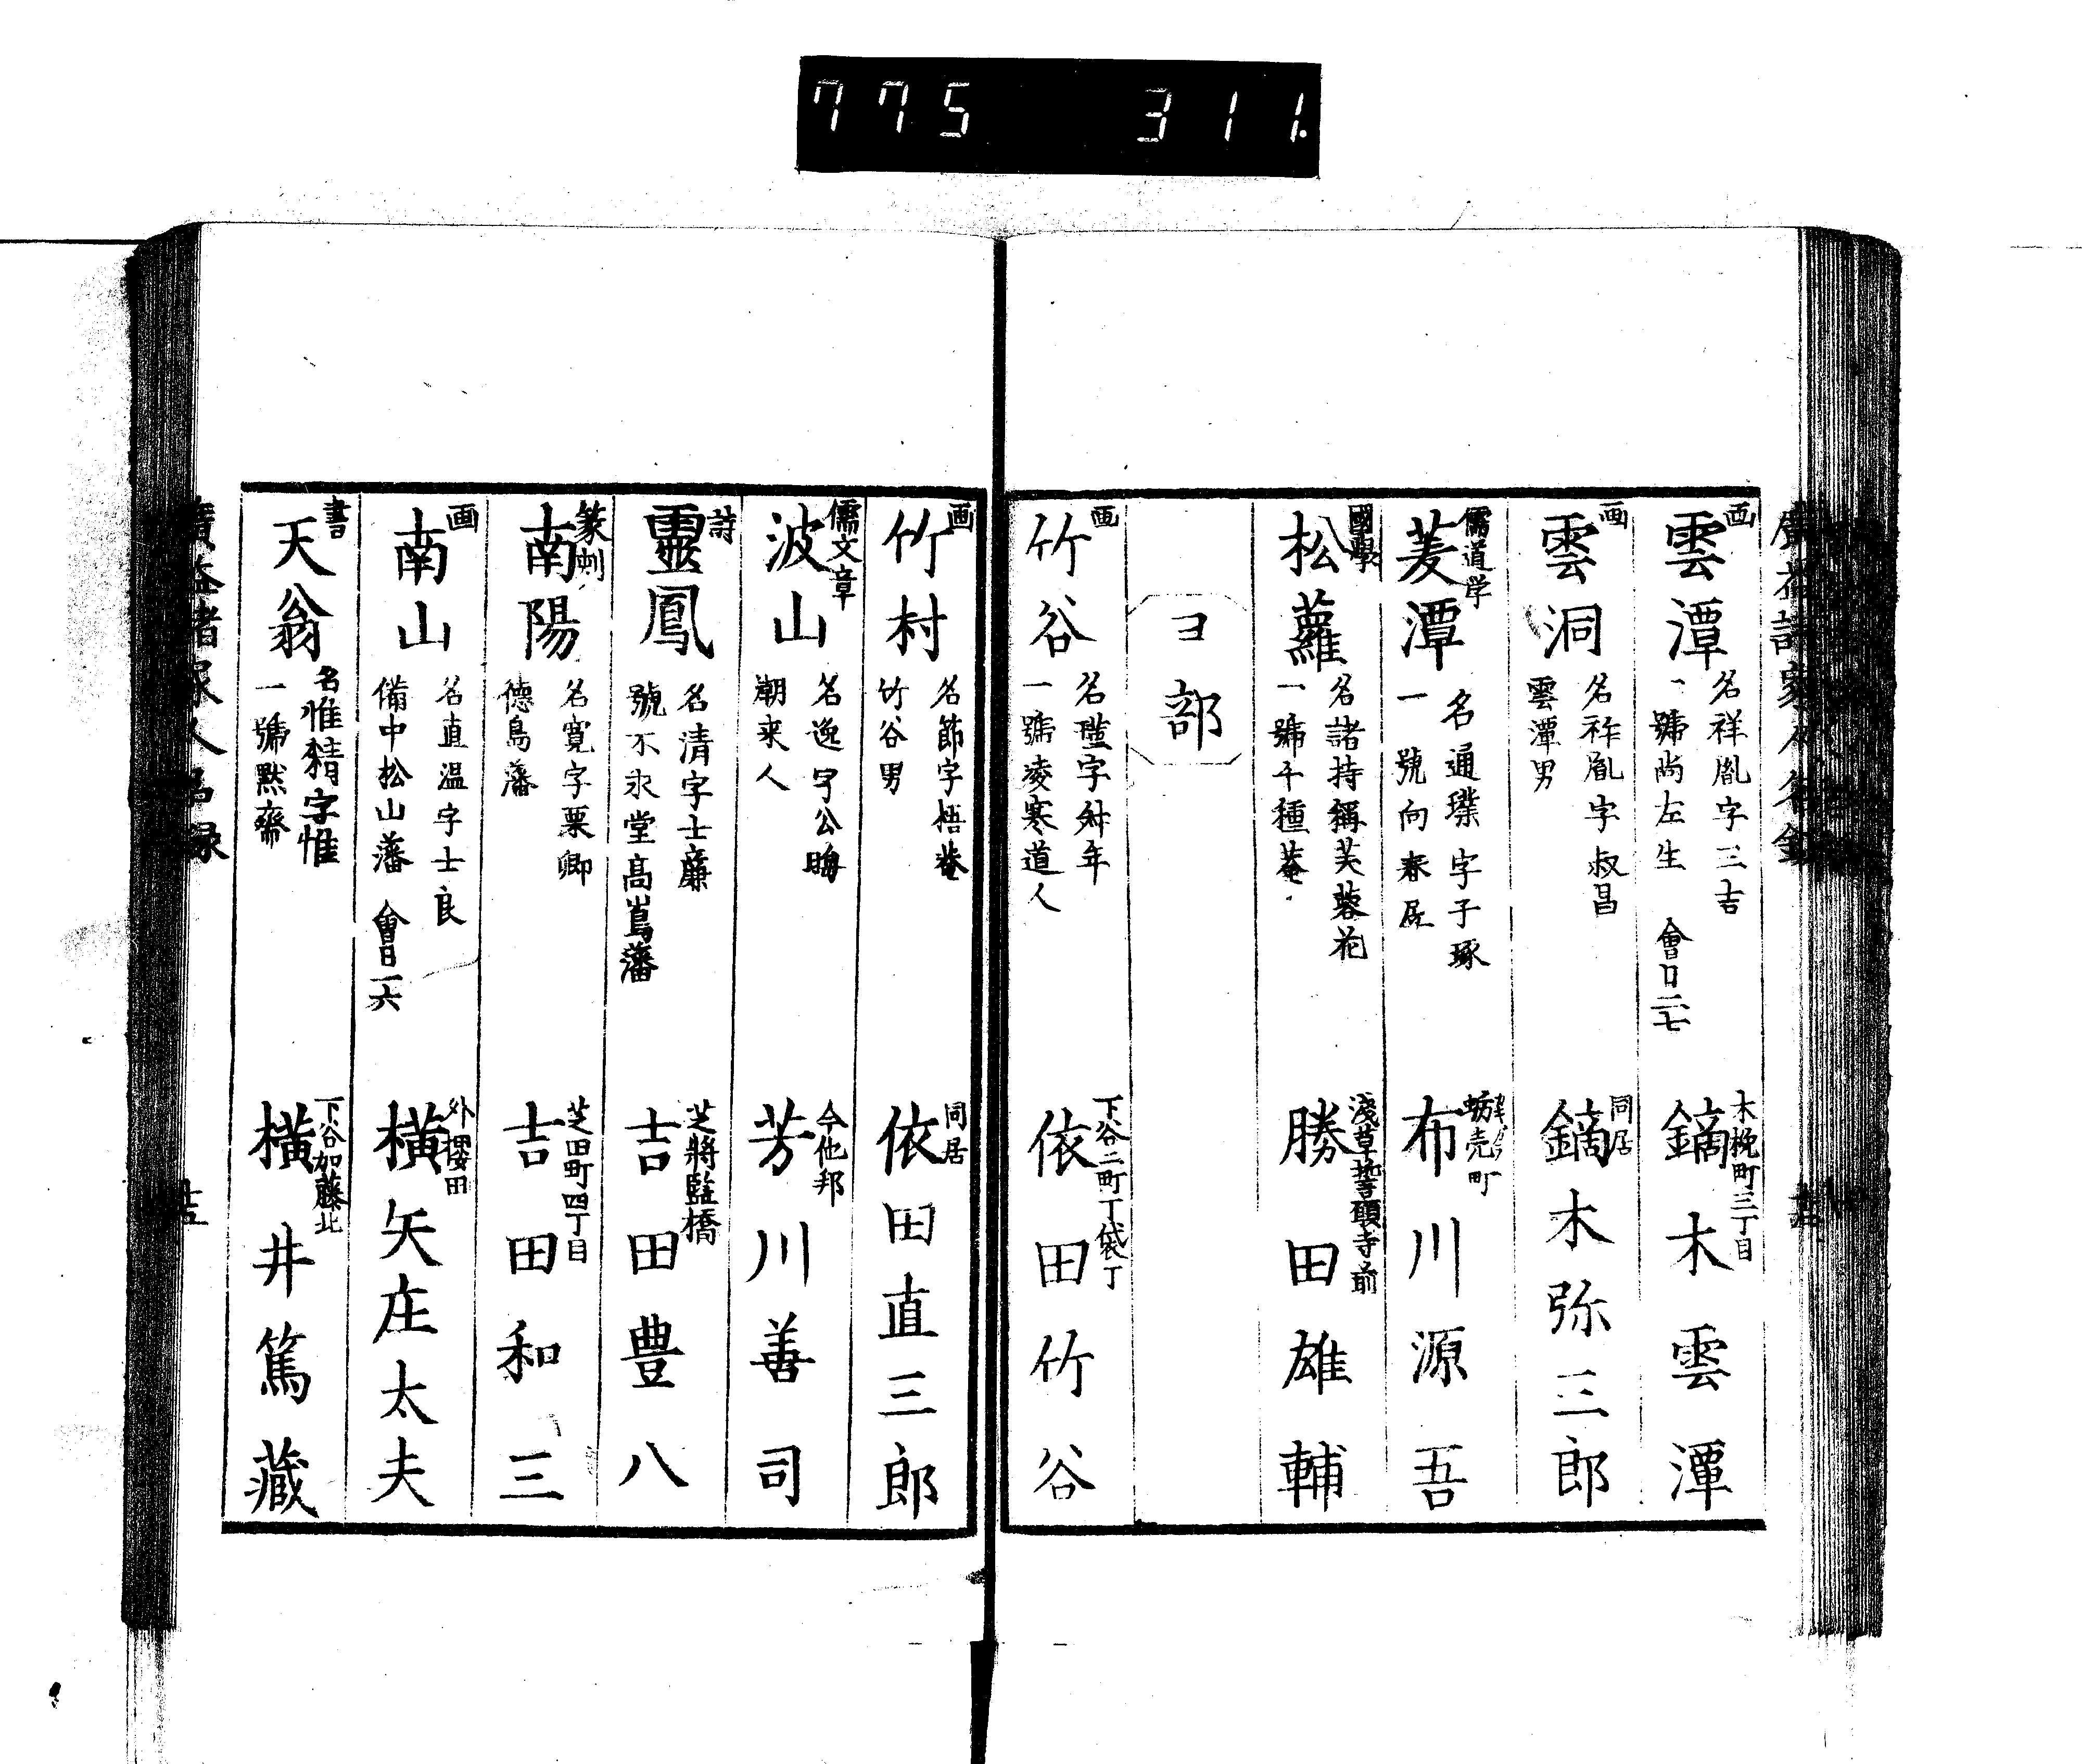 775 311.
画
雲潭
名祥胤字三吉
一號尚左生 會日二七
木挽町三丁目
鏑木雲潭
画
雲洞
名祚胤字叔昌
雲潭男
同居
鏑木弥三郎
儒道学
菱潭
名通璞字子琢
一號向春居
蛎壳町
布川源吾
國學
松蘿
名諸持稱芙蓉花
一號千種菴
淺草誓願寺前
勝田雄輔
ヨ部
画
竹谷
名瑾字叔年
一號凌寒道人
下谷二町丁袋丁
依田竹谷
画
竹村
名節字梧菴
竹谷男
同居
依田直三郎
儒文章
波山
名逸字公晦
潮来人
今他邦
芳川善司
詩
靈鳳
名清字士廉
號不氷堂高嶌藩
芝將監橋
吉田豊八
篆刻
南陽
名寛字栗卿
德島藩
芝田町四丁目
吉田和三
画
南山
名直温字士良
備中松山藩 會日一六
外櫻田
横矢庄太夫
書
天翁
名惟精字惟
一號黙齋
下谷加藤北
横井篤藏
廣益諸家人名録